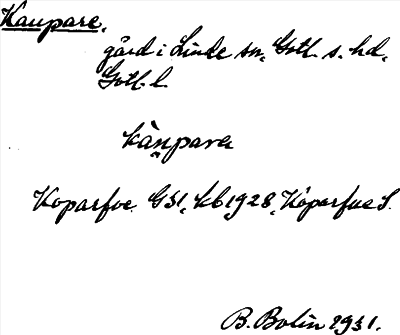 Kaupare,
gård i Linde sn, Gotl. s. hd,
Gotl. l.
kằṷpara
Koparfve G31, kb 1928, Koparfve S.
B. Bolin 1931.